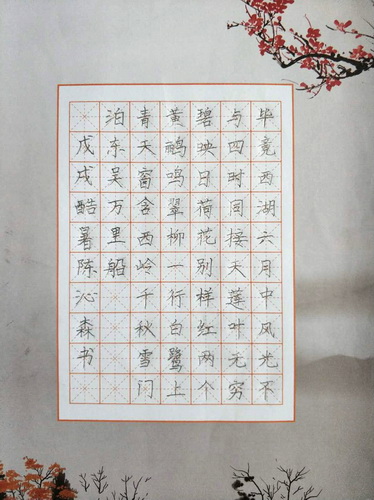 毕竟西湖六月中风光不
与四时同接天莲叶无穷
碧映日荷花别样红两个
黄鹂鸣翠柳一行白鹭上
青天窗含西岭千秋雪门
泊东吴万里船
戊戌酷暑陈沁森书